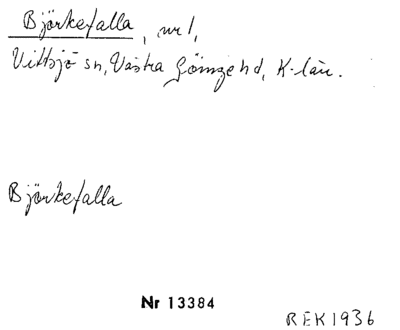 Björkefalla, nr 1,
Vittsjö sn, Västra Göinge hd, K-län.
Björkefalla
Nr 13384
REK 1936